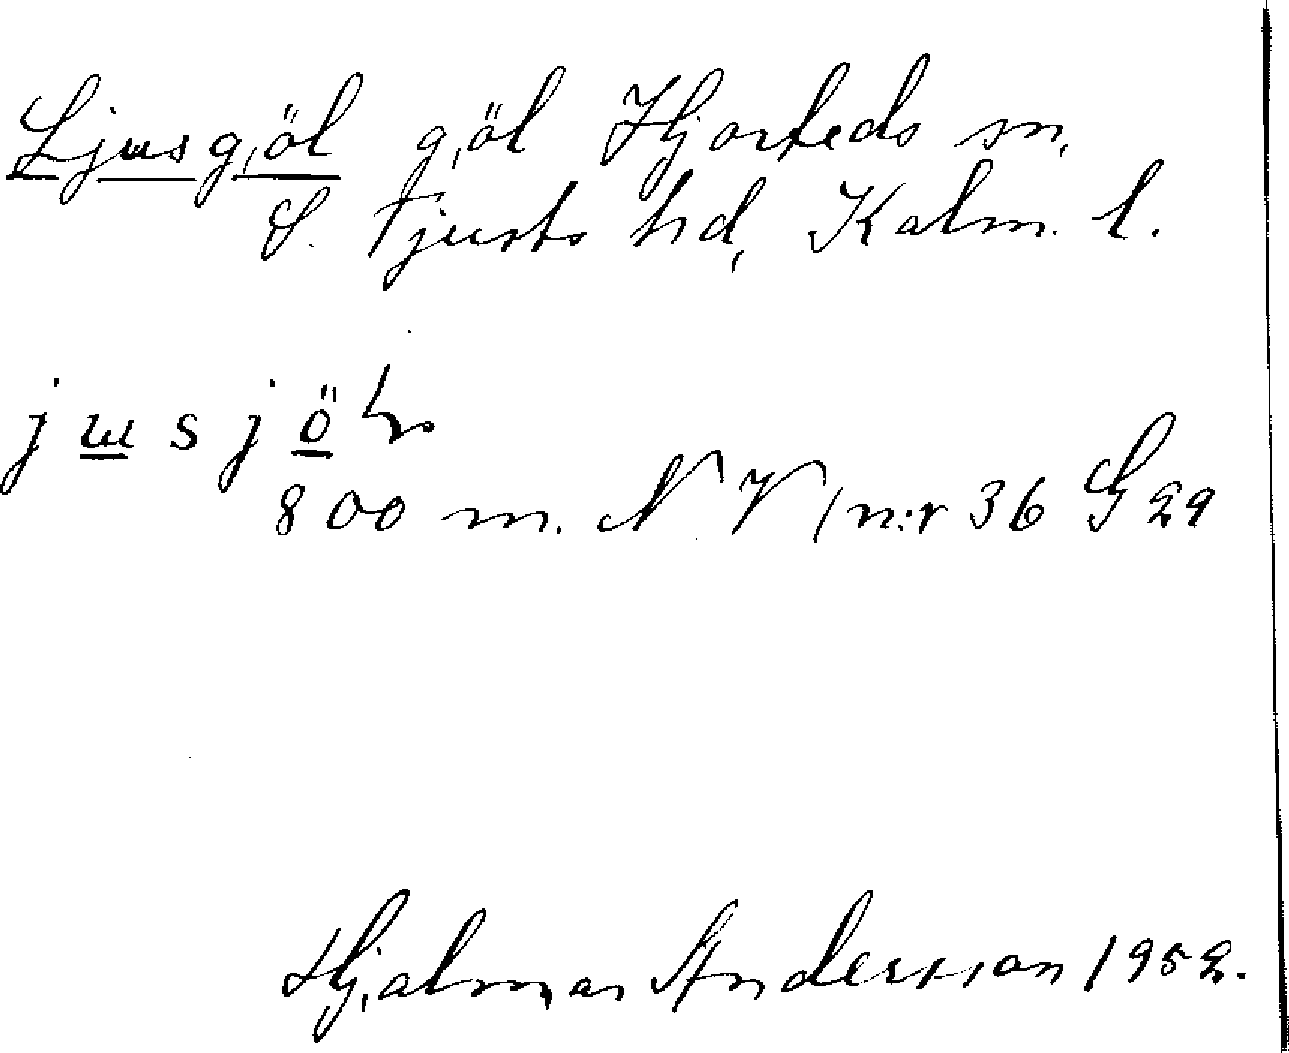 Ljusgöl göl Hjorteds sn,
S. Tjusts hd, Kalm. l.
j u s j ö
800 m. N V / n:r 36 G 29
Hjalmar Andersson 1952.